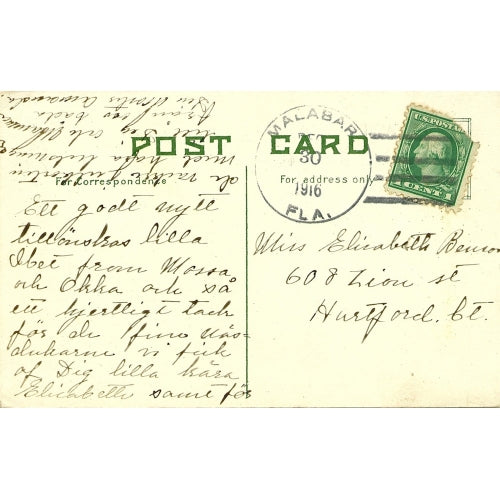 POST CARD
For Correspondence
For address only
MALABAR
DEC
30
1916
FLA.
U.S. POSTAGE
1 CENT 1
Ett godt nytt
tillönskas lilla
from Mossa
och Okka och så
ett hjertligt tack
för de fine näs-
dukarne vi fick
af Dig lilla kära
Elizabeth samt för
de
med
till Dig och
från
Din
Miss Elizabeth Benson
608 Zion st
Hartford. Ct.